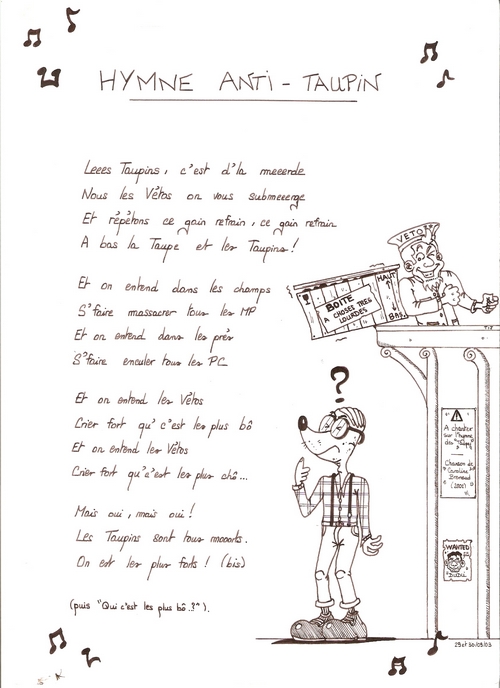 HYMNE ANTI - TAUPIN
Leees Taupins, c'est d'la meeerde
Nous les Vétos on vous submeeerge
Et répétons ce gain refrain, ce gain refrain
A bas la Taupe et les Taupins !
Et on entend dans les champs
S'faire massacrer tous les MP
Et on entend dans les prés
S'faire enculer tous les PC
Et on entend les Vétos
Crier fort qu'c'est les plus bô
Et on entend les Vétos
Crier fort qu'c'est les plus chô...
Mais oui, mais oui !
Les Taupins sont tous mooorts.
On est les plus forts ! (bis)
(puis "Qui c'est les plus bô..?").
VETO
HAUT
BAS
BOITE
A CHOSES TRES
LOURDES
?
A chanter
sur l'hymne
des
Chanson de
Caroline
(2001)
WANTED
29 et 30/03/03